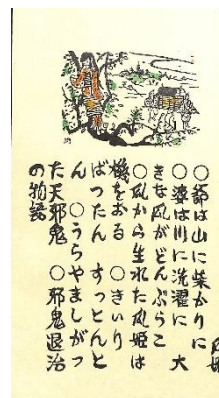 ○爺は山に柴かりに
○婆は川に洗濯に 大
きな瓜がどんぶらこ
○瓜から生れた瓜姫は
機をおる ○きいり
ばつたん すつとんと
ん ○うらやましがつ
た天邪鬼 ○邪鬼退治
の物語